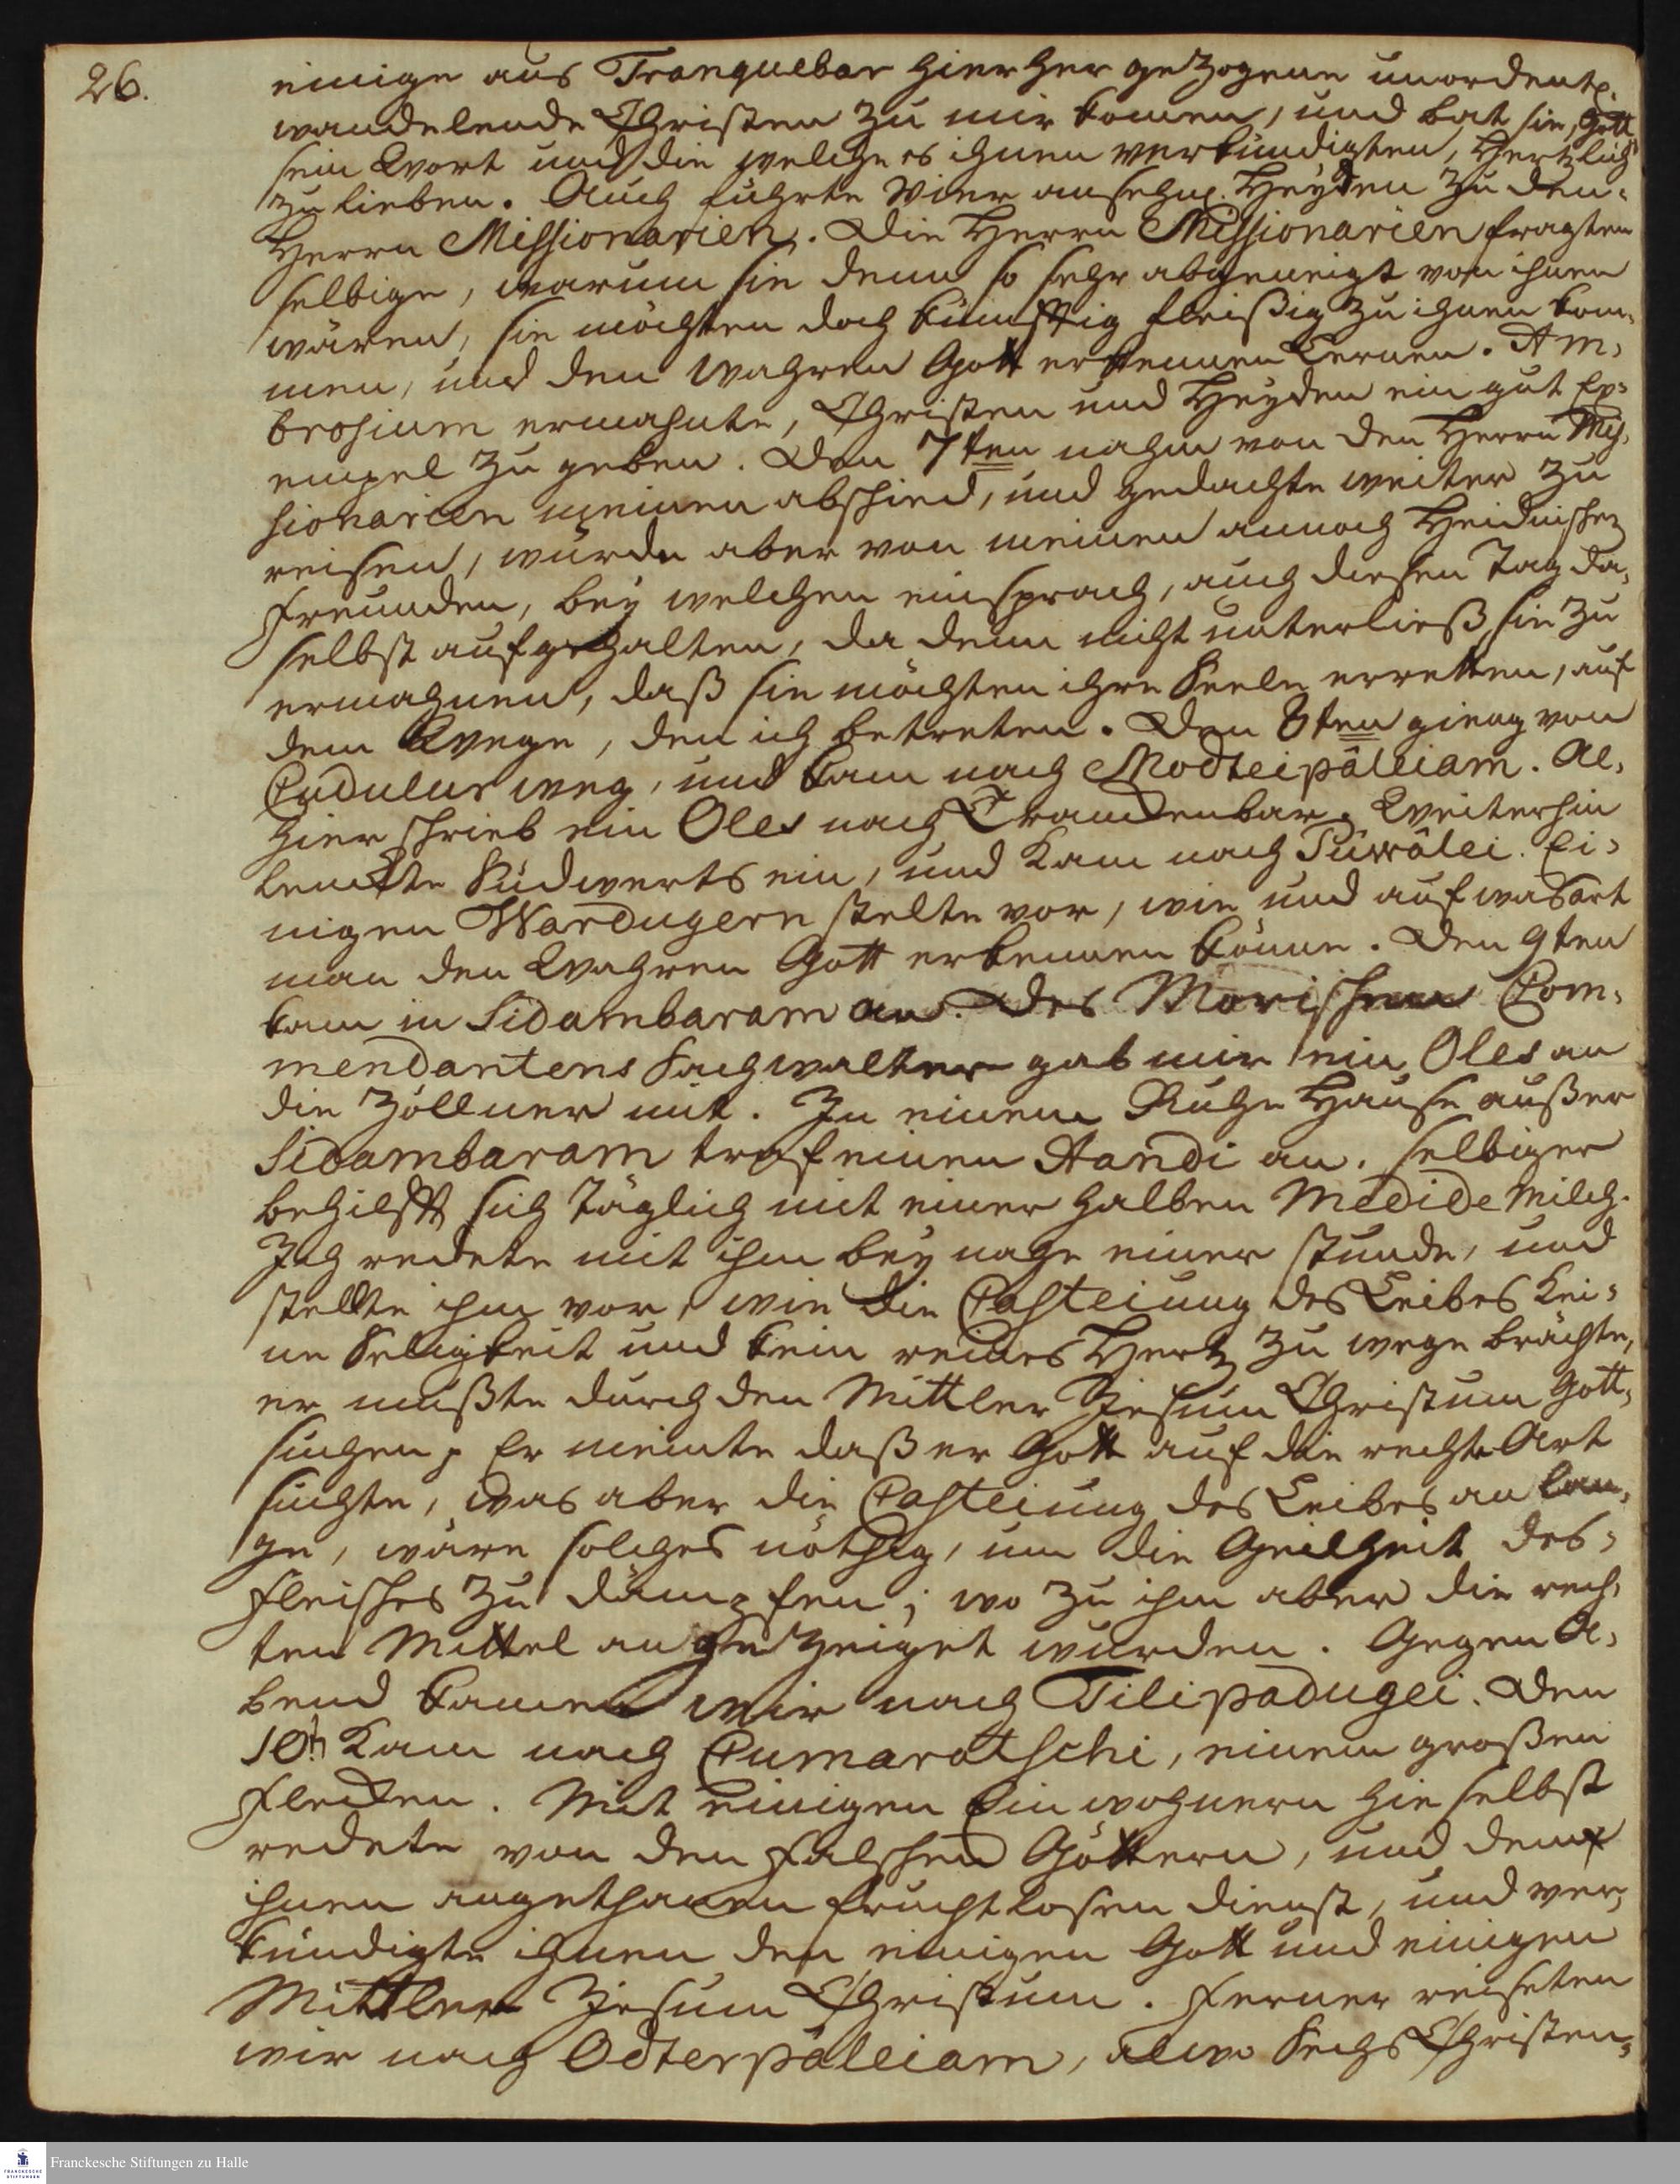 26.
einige aus Tranquebar hierher gezogene unordentl.
wandelende Christen zu mir komen, und bat sie, Gott
sein Wort und die welche es ihnen verkündigten, hertzlich
zu lieben. Auch führte vier ansehnl. Heyden zu den-
Herrn Missionarien. Die Herrn Missionarien fragten
selbige, warum sie denn so sehr abgeneigt von ihnen
wären, sie möchten doch künfftig fleißig zu ihnen kom-
men, und den wahren Gott erkennen lernen. Am-
brosium ermahnte, Christen und Heyden ein gut Ex-
empel zu geben. Den 7ten nahm von den Herrn Mis-
sionarien meinen abschied, und gedachte weiter zu
reisen, wurde aber von meinen annoch Heidnischen
freunden, bey welchen einsprach, auch diesen Tag da-
selbst aufgehalten, da denn nicht unterließ, sie zu
ermahnen, daß sie möchten ihre Seele erretten, auf
dem Wege, den ich betreten. Den 8ten gieng von
Cudulur weg, und kam nach Modteipâlleiam. Al-
hier schrieb ein Oles nach Trankenbar. Weiterhin
lenckte Südwerts ein, und kam nach Puwâlei. Ei-
nigen Wardugern stelte vor, wie und auf was art
man den Wahren Gott erkennen könne. Den 9ten
kam in Sidambaram an. Des Morischen Com-
mendantens Sachwalter gab mir ein Oles an
die Zöllner mit. In einem Ruhe Hause außer
Sidambaram traf einen Aandi an. selbiger
behilfft sich täglich mit einer halben Medide Milch.
Ich redete mit ihm bey nahe einer stunde, und
stellte ihm vor, wie die Casteiung des Leibes kei-
ne Seligkeit und kein reines Hertz zu wege brächte,
er müßte durch den Mittler Jesum Christum Gott
suchen. Er meinte daß er Gott auf die rechte Art
suchte, was aber die Casteiung des Leibes an lan-
ge, wäre solches nöthig, um die Geilheit des-
fleisches zu dämpfen; wo zu ihm aber die rech-
ten Mittel angezeiget wurden. Gegen A-
bend kamen wir nach Tilipadugei. Den
10t. kam nach Cumaratschi, einem großen
flecken. Mit einigen Einwohnern hieselbst
redete von den falschen Göttern, und dem
ihnen angethanen fruchtlosen dienst, und ver-
kündigte ihnen den einigen Gott und einigen
Mittler Jesum Christum. Ferner reiseten
wir nach Odterpâlleiam, alwo Sechs Christen-
Franckesche Stiftungen zu Halle
FRANCKESCHE STIFTUNGEN